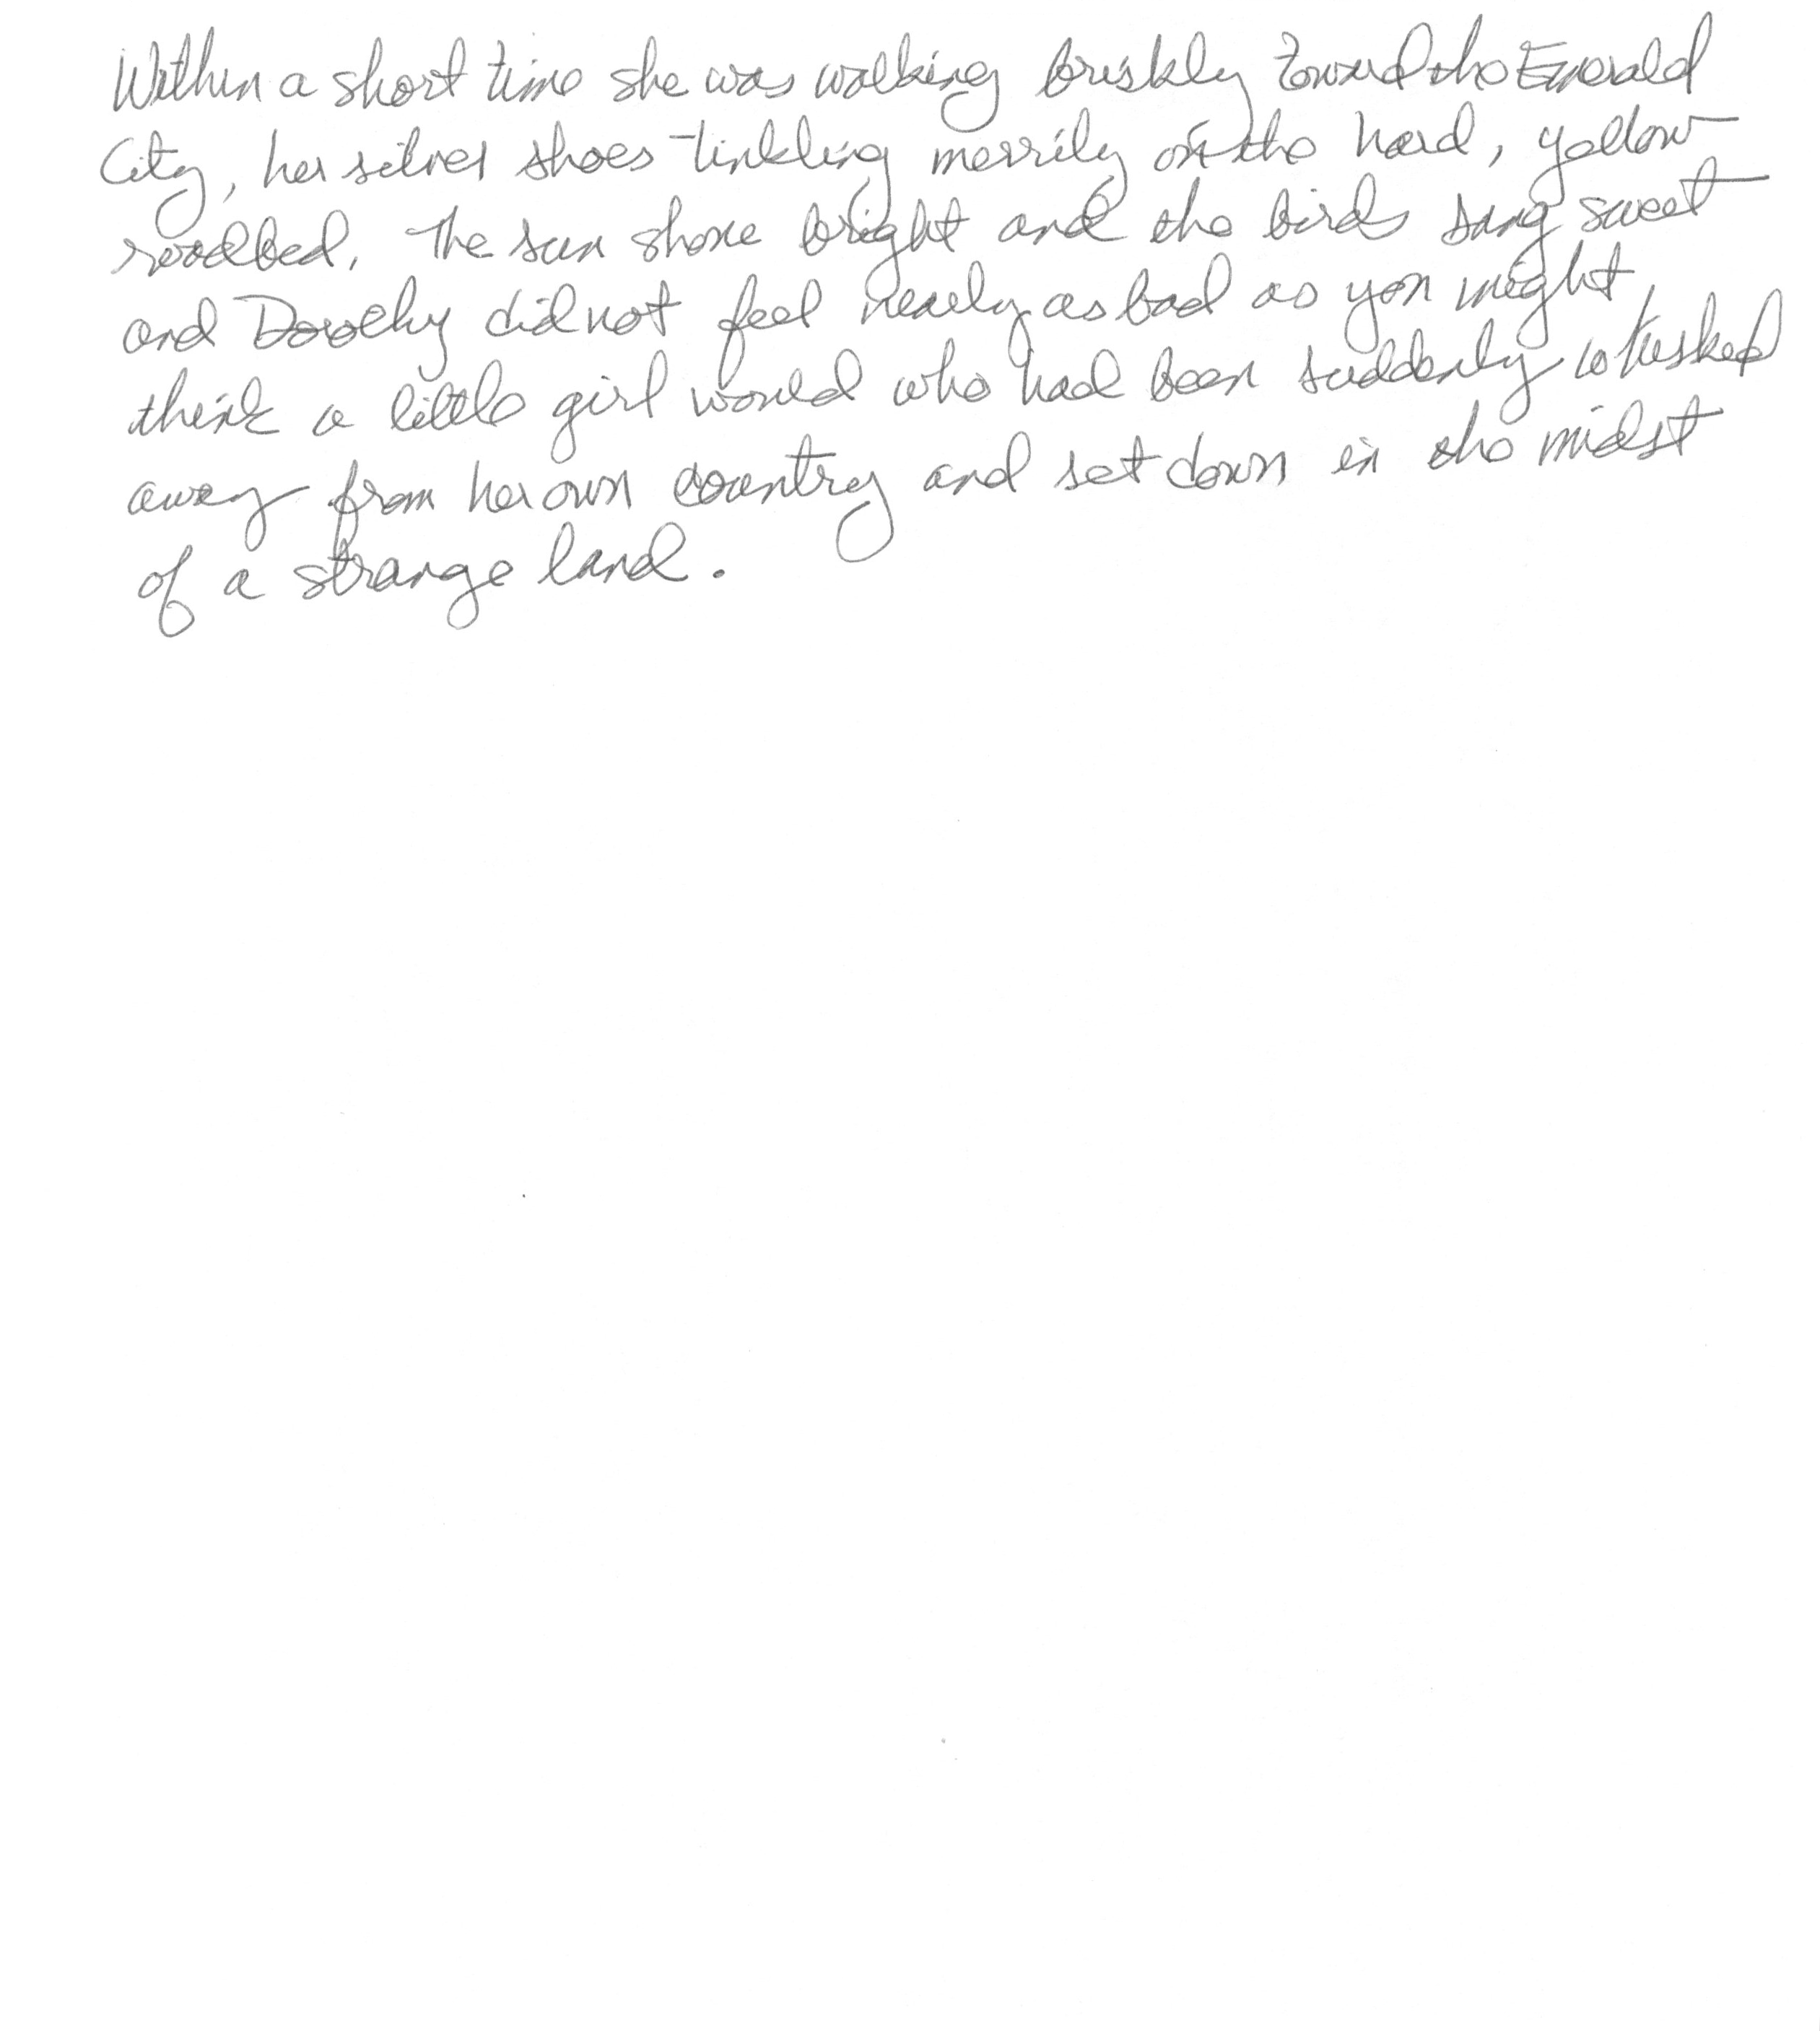 Within a short time she was walking briskly toward the Emerald
City, her silver shoes tinkling merrily on the hard, yellow
roadbed. The sun shone bright and the birds sang sweet
and Dorothy did not feel nearly as bad as you might
think a little girl would who had been suddenly whisked
away from her own country and set down in the midst
of a strange land.